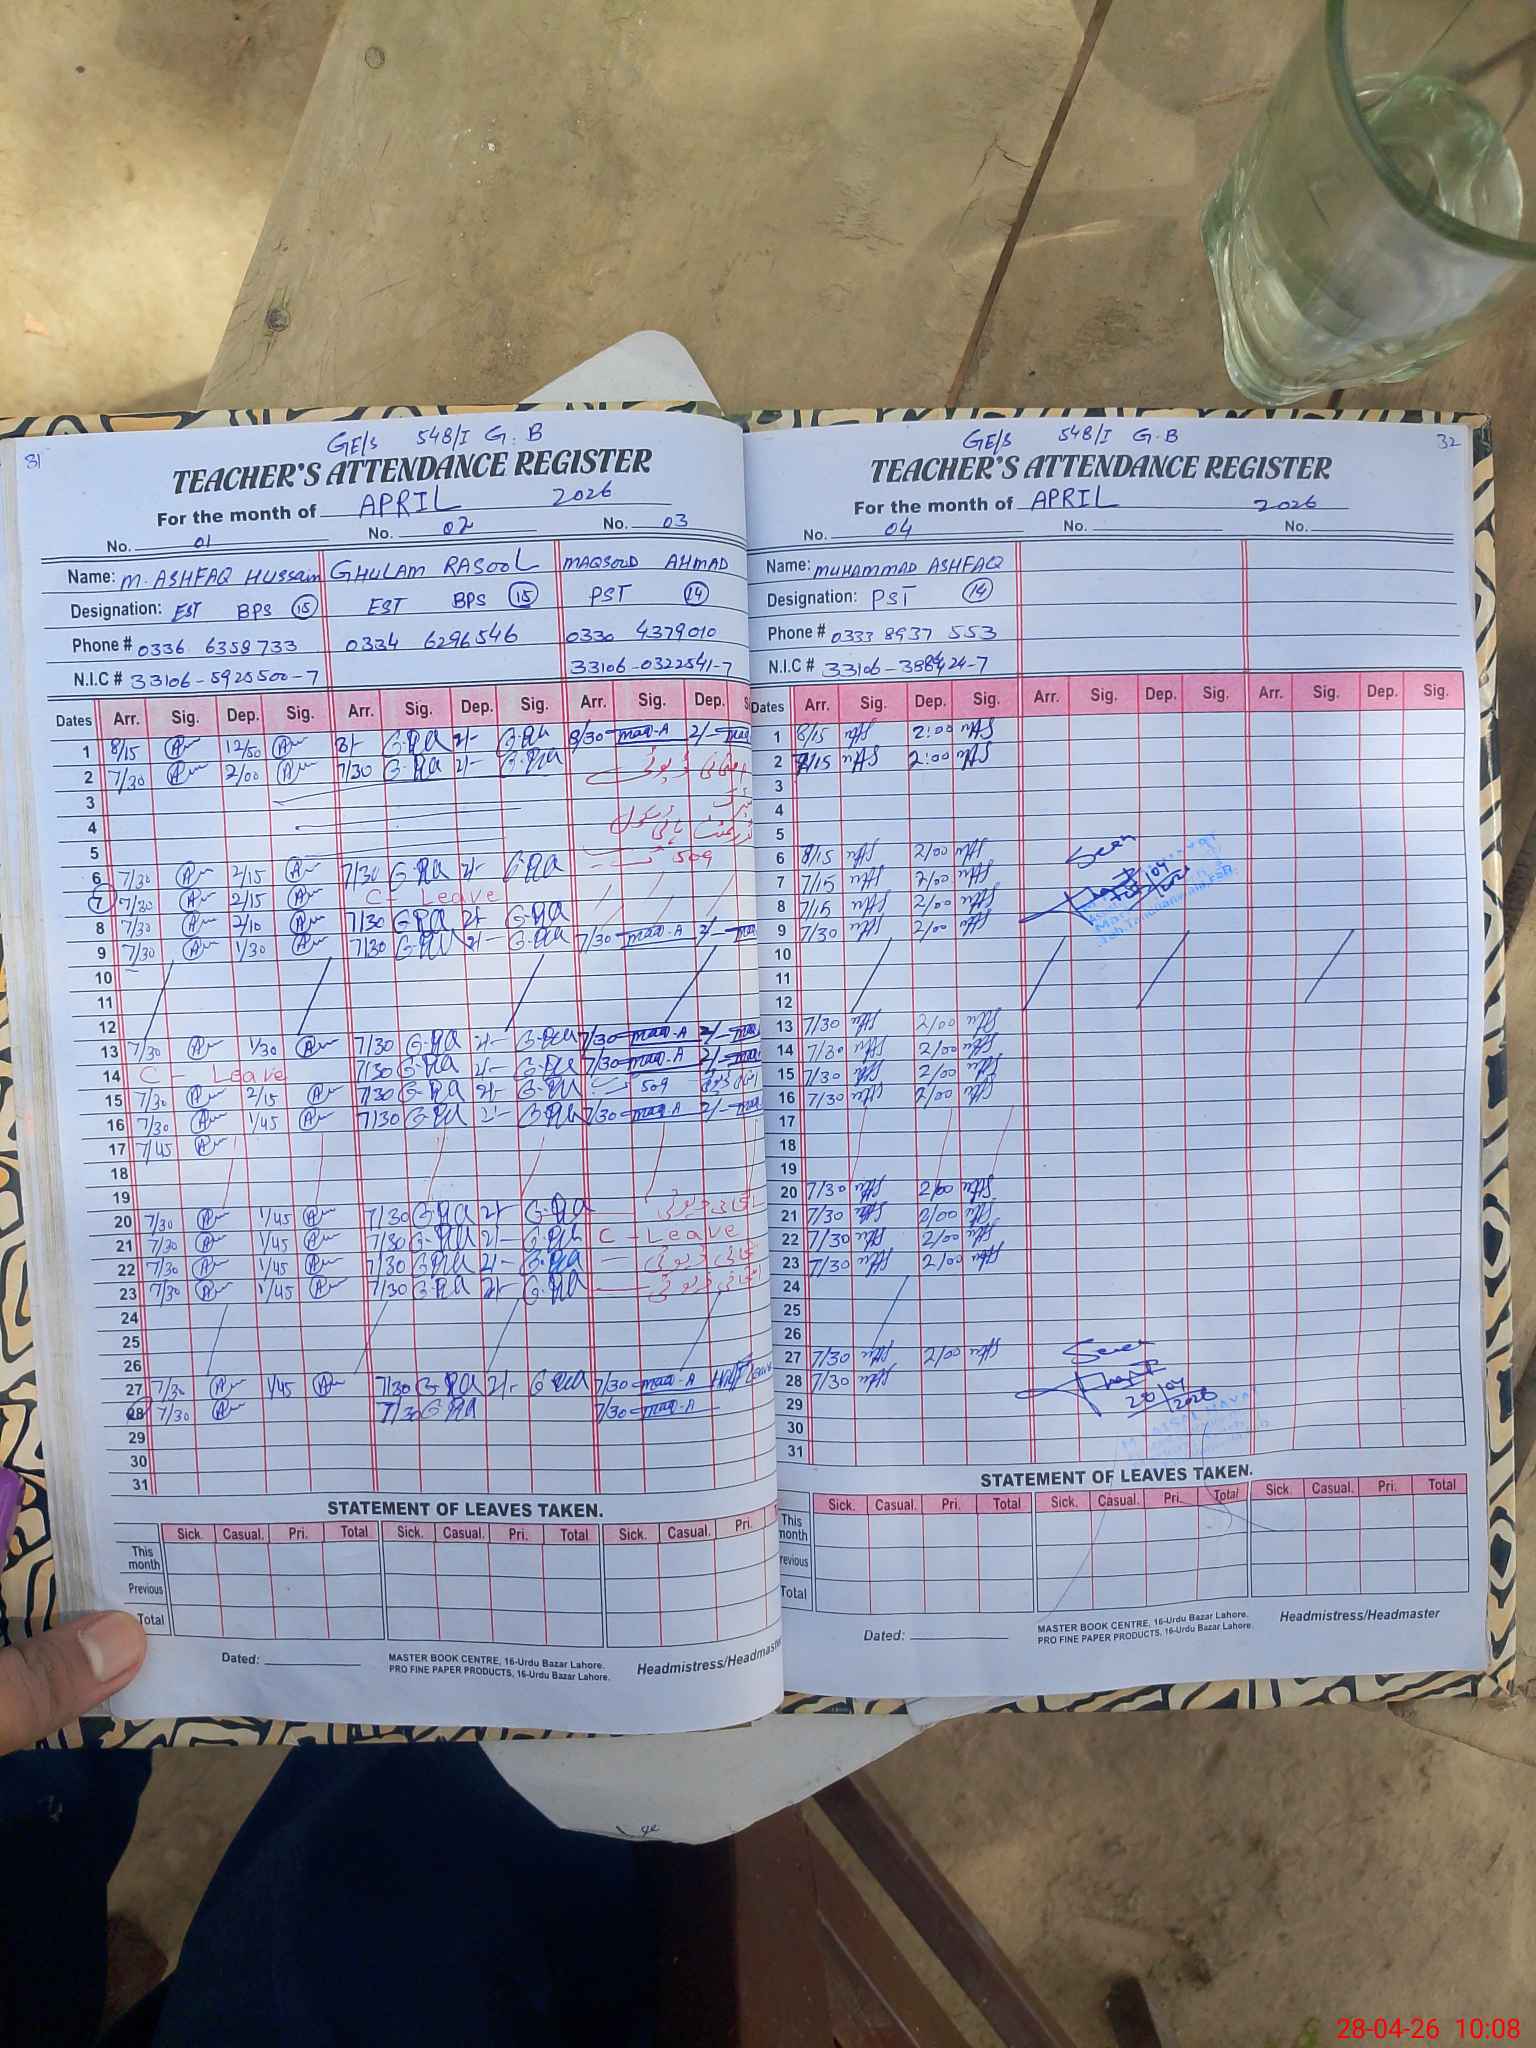 31
GE/S 548/I G.B
TEACHER'S ATTENDANCE REGISTER
For the month of APRIL 2026
No. 01 No. 02 No. 03
Name: M. ASHFAQ HUSSAIN GHULAM RASOOL MAQSOOD AHMAD
Designation: EST BPS 15 EST BPS 15 PST 14
Phone # 0336 6358733 0334 6296546 0330 4379010
N.I.C # 33106-5925500-7 33106-0322541-7
Dates Arr. Sig. Dep. Sig. Arr. Sig. Dep. Sig. Arr. Sig. Dep. S
1 8/15 12/50 8/- 2/- 8/30 2/-
2 7/30 2/00 7/30 2/- امتحانی ڈیوٹی
3
4 ہائی سکول
5 509
6 7/30 2/15 7/30 2/-
7 7/30 2/15 C - Leave
8 7/30 2/10 7/30 2/-
9 7/30 1/30 7/30 2/- 7/30 2/-
10
11
12
13 7/30 1/30 7/30 2/- 7/30 2/-
14 C - Leave 7/30 2/- 7/30 2/-
15 7/30 2/15 7/30 2/- 509
16 7/30 1/45 7/30 2/- 7/30 2/-
17 7/45
18
19
20 7/30 1/45 7/30 2/- امتحانی ڈیوٹی
21 7/30 1/45 7/30 2/- C - Leave
22 7/30 1/45 7/30 2/- امتحانی ڈیوٹی
23 7/30 1/45 7/30 2/- امتحانی ڈیوٹی
24
25
26
27 7/30 1/45 7/30 2/- 7/30 Half Leave
28 7/30 7/30 7/30
29
30
31
STATEMENT OF LEAVES TAKEN.
Sick. Casual. Pri. Total Sick. Casual. Pri. Total Sick. Casual. Pri.
This month
Previous
Total
Dated:
MASTER BOOK CENTRE, 16-Urdu Bazar Lahore.
PRO FINE PAPER PRODUCTS, 16-Urdu Bazar Lahore.
Headmistress/Headmaster
32
GE/S 548/I G.B
TEACHER'S ATTENDANCE REGISTER
For the month of APRIL 2026
No. 04 No. No.
Name: MUHAMMAD ASHFAQ
Designation: PST 14
Phone # 0333 8937 553
N.I.C #
Dates Arr. Sig. Dep. Sig. Arr. Sig. Dep. Sig. Arr. Sig. Dep. Sig.
1 8/15 2:00
2 7/15 2:00
3
4
5
6 8/15 2/00 Seen
7 7/15 2/00
8 7/15 2/00
9 7/30 2/00
10
11
12
13 7/30 2/00
14 7/30 2/00
15 7/30 2/00
16 7/30 2/00
17
18
19
20 7/30 2/00
21 7/30 2/00
22 7/30 2/00
23 7/30 2/00
24
25
26
27 7/30 2/00 Seen
28 7/30
29 28/04/2026
30
31
STATEMENT OF LEAVES TAKEN.
Sick. Casual. Pri. Total Sick. Casual. Pri. Total Sick. Casual. Pri. Total
This month
Previous
Total
Dated:
MASTER BOOK CENTRE, 16-Urdu Bazar Lahore.
PRO FINE PAPER PRODUCTS, 16-Urdu Bazar Lahore.
Headmistress/Headmaster
28-04-26 10:08